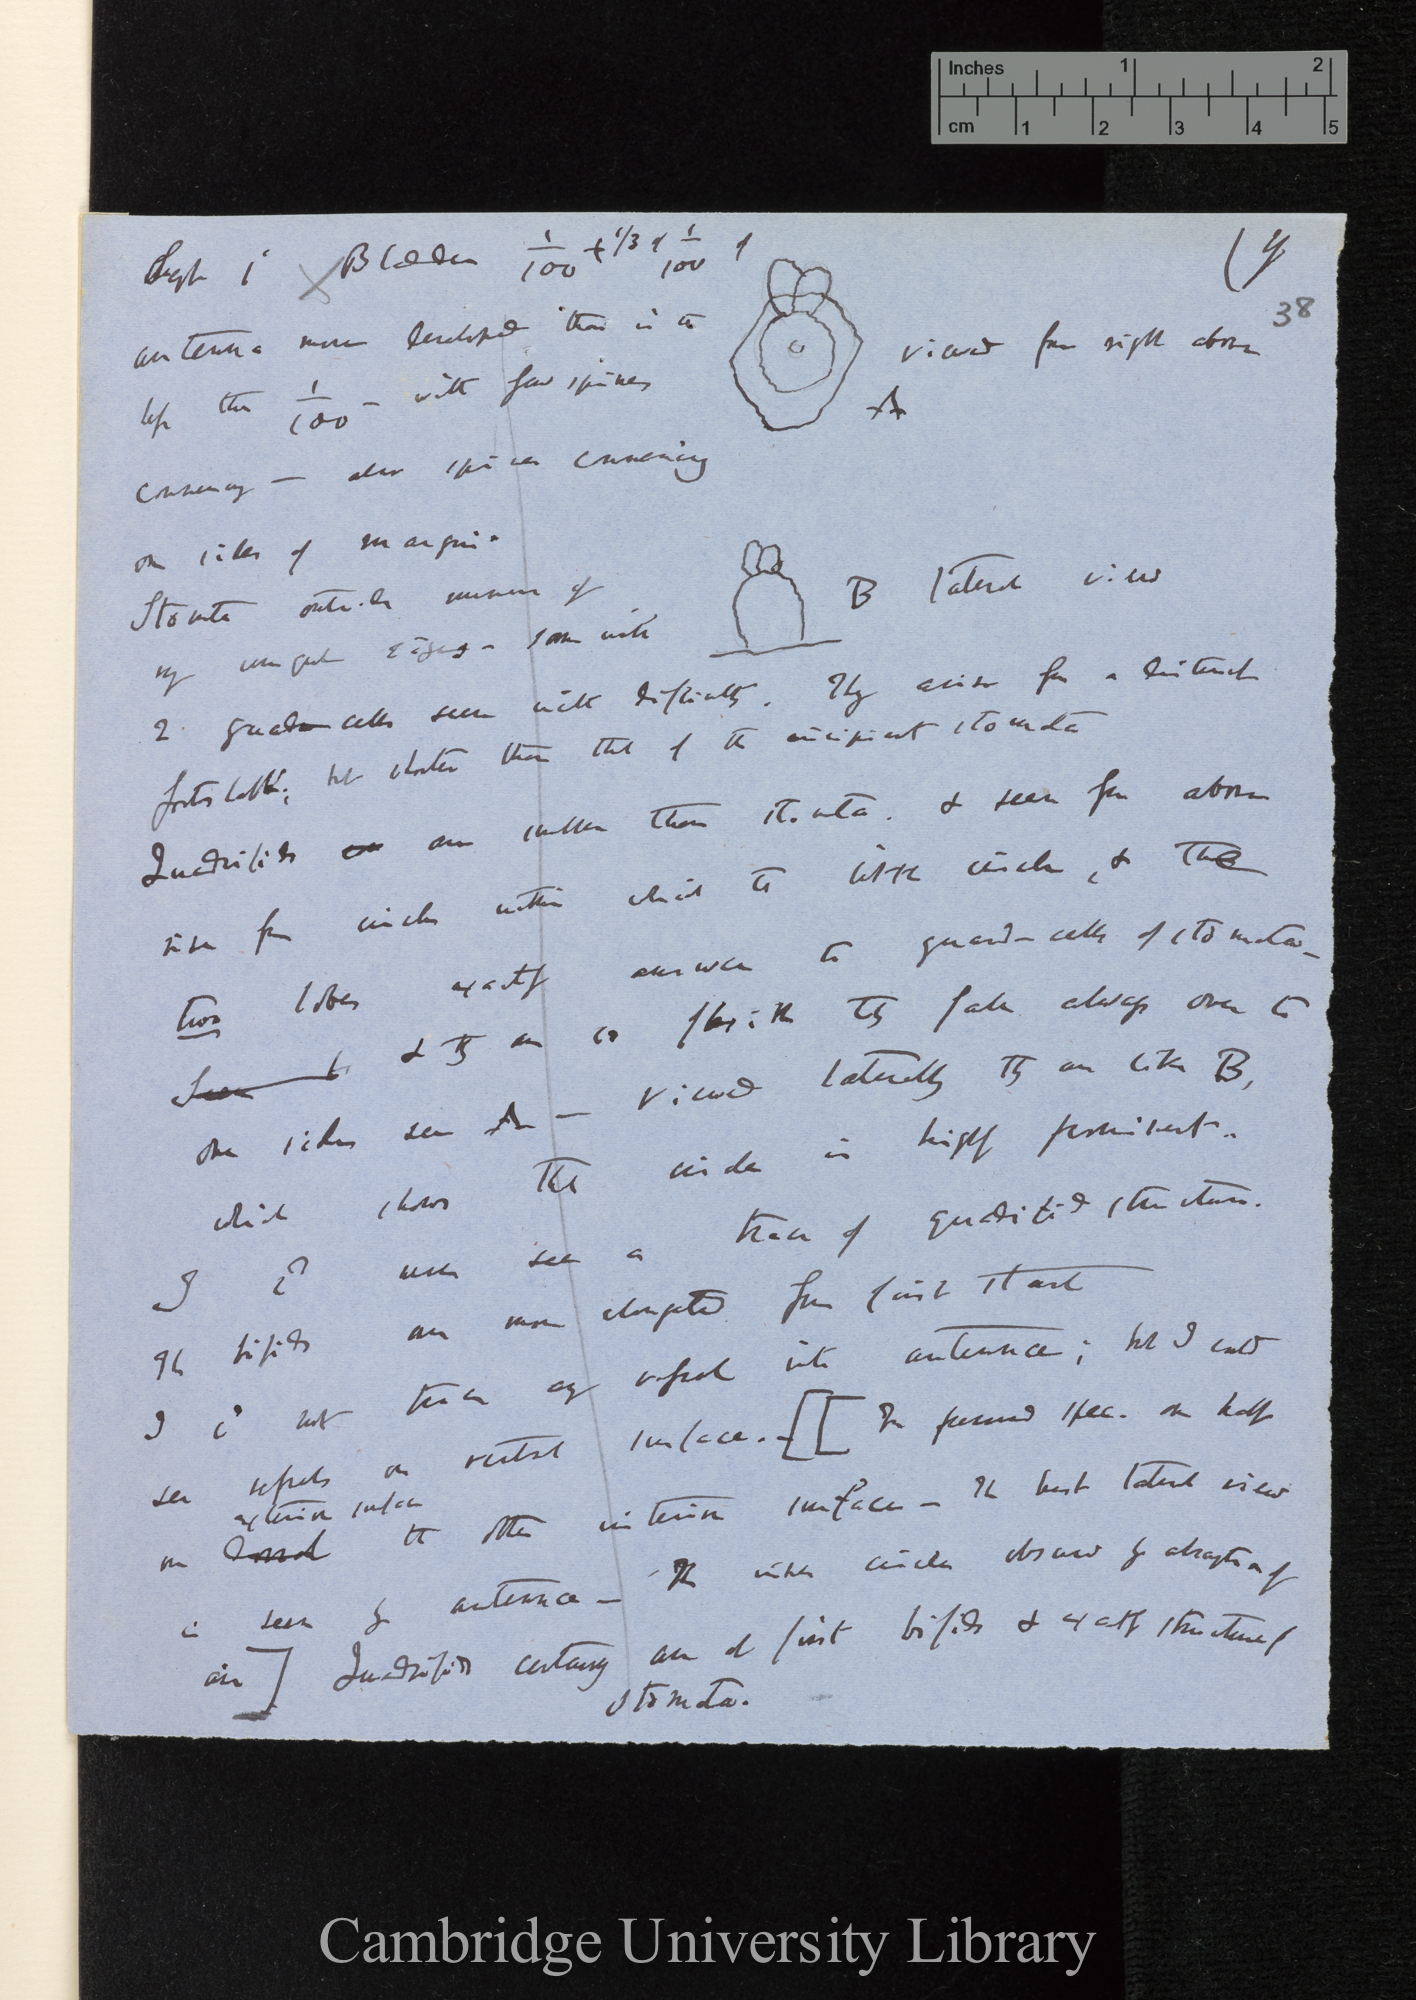 Inches 1 2
cm 1 2 3 4 5
(4
38
Sept 1' Bladder 1/100 + 1/3 of 1/100 of
antennæ more developed than in the
viewed from right above
A
less than 1/100 — with few spines
commencing — also spines commencing
on sides of margin.
Stomata outside
B lateral view
with
2 guard-cells seen with difficulty. They arise from a distinct
footstalk; but shorter than that of the incipient stomata
Quadrifids are smaller than stomata. & seen from above
rise from circles within which is little circle, & the
two lobes exactly answer to guard-cells of stomata —
& they are so flexible they fall always over to
one side seen A — viewed laterally they are like B,
which shows that circle is highly prominent.
I cd never see a trace of quadrifid structure.
The bifids are more elongated from first start
I cd not trace any upwards into antennæ; but I could
see on ventral surface. — [[ In second spec. one half
exterior surface
on the other interior surface — The best lateral view
is seen by antennæ — The inner circle obscured by absorption of
air] Quadrifids certainly are at first bifids & exactly structure of
stomata.
Cambridge University Library